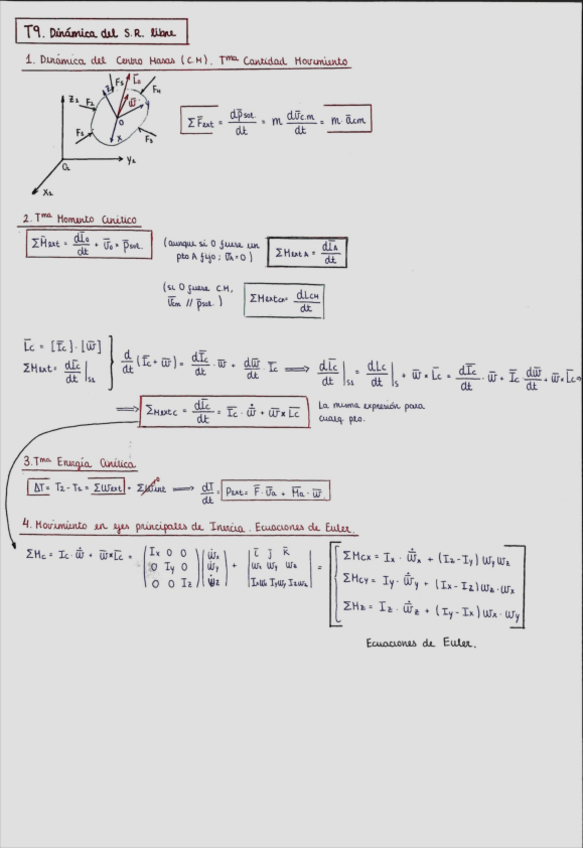 T9. Dinámica del S.R. libre
1. Dinámica del Centro Masas (C.M). Tma Cantidad Movimiento
Z1 F2 F3 L̄o ω̄ F4 F5 z x O O1 Y1 X1
ΣF̄ext = dp̄sol./dt = m dv̄c.m/dt = m ācm
2. Tma Momento Cinético
ΣM̄ext = dL̄o/dt + v̄o × p̄sol.
(aunque si O fuese un pto A fijo; v̄A=0)
ΣMext A = dL̄A/dt
(si O fuera C.M, v̄cm // p̄sol.)
ΣMext CM = dLCM/dt
L̄c = [Īc]·[ω̄]
ΣMext = dL̄c/dt |S1
d/dt (Īc·ω̄) = dĪc/dt · ω̄ + dω̄/dt · Īc ⟹ dL̄c/dt |S1 = dLc/dt |S + ω̄ × L̄c = dĪc/dt · ω̄ + Īc dω̄/dt + ω̄×L̄c
⟹ ΣMext C = dL̄c/dt = Īc · ω̄̇ + ω̄×L̄c
La misma expresión para
cualq. pto.
3. Tma Energía Cinética
ΔT = T2 - T1 = ΣWext + ΣWint ⟹ dT/dt = Pext = F̄·v̄a + M̄a·ω̄
4. Movimiento en ejes principales de Inercia. Ecuaciones de Euler.
ΣMc = Ic · ω̄̇ + ω̄×L̄c = (Ix 0 0 / 0 Iy 0 / 0 0 Iz) (ω̇x / ω̇y / ω̇z) + | ī j̄ k̄ / ωx ωy ωz / Ixωx Iyωy Izωz | =
ΣMcx = Ix · ω̇x + (Iz-Iy) ωyωz
ΣMcy = Iy · ω̇y + (Ix-Iz) ωz·ωx
ΣMz = Iz · ω̇z + (Iy-Ix) ωx·ωy
Ecuaciones de Euler.